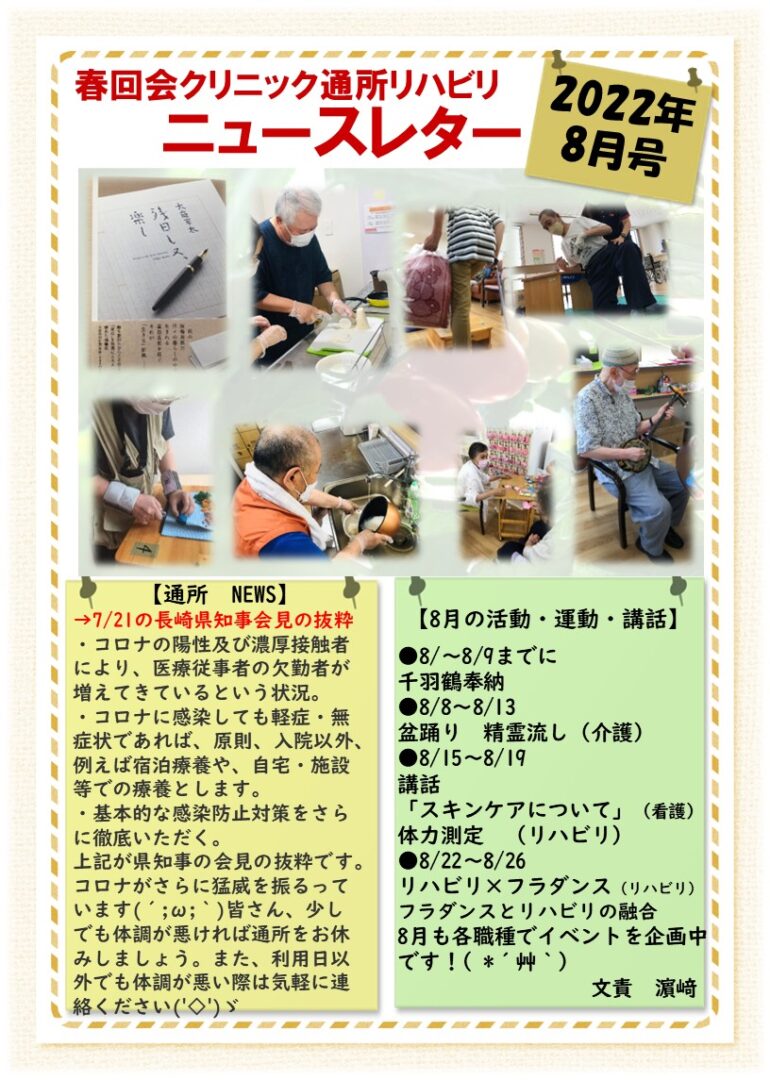 春回会クリニック通所リハビリ
ニュースレター
2022年
8月号
残日しス、
楽し
4
【通所　NEWS】
→7/21の長崎県知事会見の抜粋
・コロナの陽性及び濃厚接触者
により、医療従事者の欠勤者が
増えてきているという状況。
・コロナに感染しても軽症・無
症状であれば、原則、入院以外、
例えば宿泊療養や、自宅・施設
等での療養とします。
・基本的な感染防止対策をさら
に徹底いただく。
上記が県知事の会見の抜粋です。
コロナがさらに猛威を振るって
います(´;ω;`)皆さん、少し
でも体調が悪ければ通所をお休
みしましょう。また、利用日以
外でも体調が悪い際は気軽に連
絡ください('◇')ゞ
【8月の活動・運動・講話】
●8/～8/9までに
千羽鶴奉納
●8/8～8/13
盆踊り　精霊流し（介護）
●8/15～8/19
講話
「スキンケアについて」（看護）
体力測定　（リハビリ）
●8/22～8/26
リハビリ×フラダンス（リハビリ）
フラダンスとリハビリの融合
8月も各職種でイベントを企画中
です！( *´艸`)
文責　濵﨑